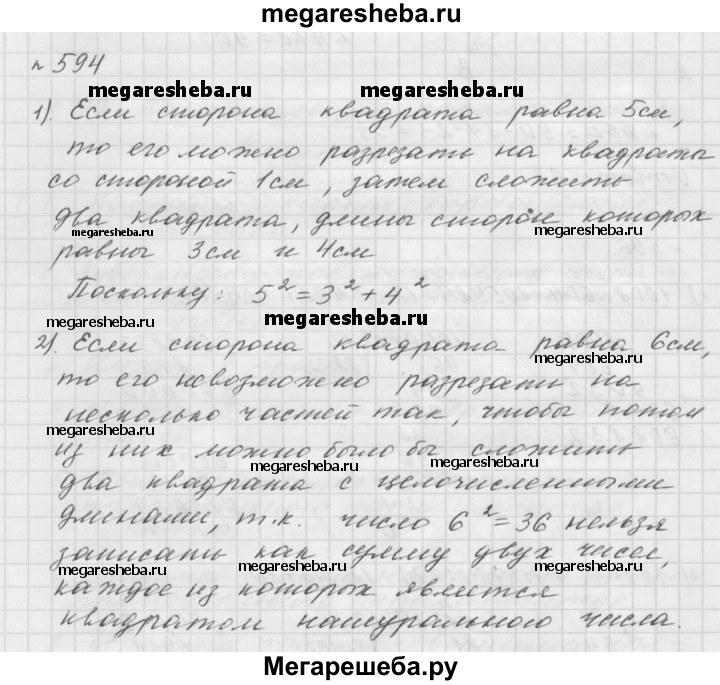 megaresheba.ru
№ 594
megaresheba.ru megaresheba.ru
1). Если сторона квадрата равна 5см,
то его можно разрезать на квадраты
со стороной 1см, затем сложить
два квадрата, длины сторон которых
megaresheba.ru megaresheba.ru
равны 3см и 4см
Поскольку: 5² = 3² + 4²
megaresheba.ru megaresheba.ru
2). Если сторона квадрата равна 6см,
megaresheba.ru megaresheba.ru
то его невозможно разрезать на
несколько частей так, чтобы потом
megaresheba.ru
из них можно было бы сложить
megaresheba.ru megaresheba.ru
два квадрата с целочисленными
длинами, т.к. число 6² = 36 нельзя
записать как сумму двух чисел,
megaresheba.ru megaresheba.ru megaresheba.ru
каждое из которых является
квадратом натурального числа.
Мегарешеба.ру